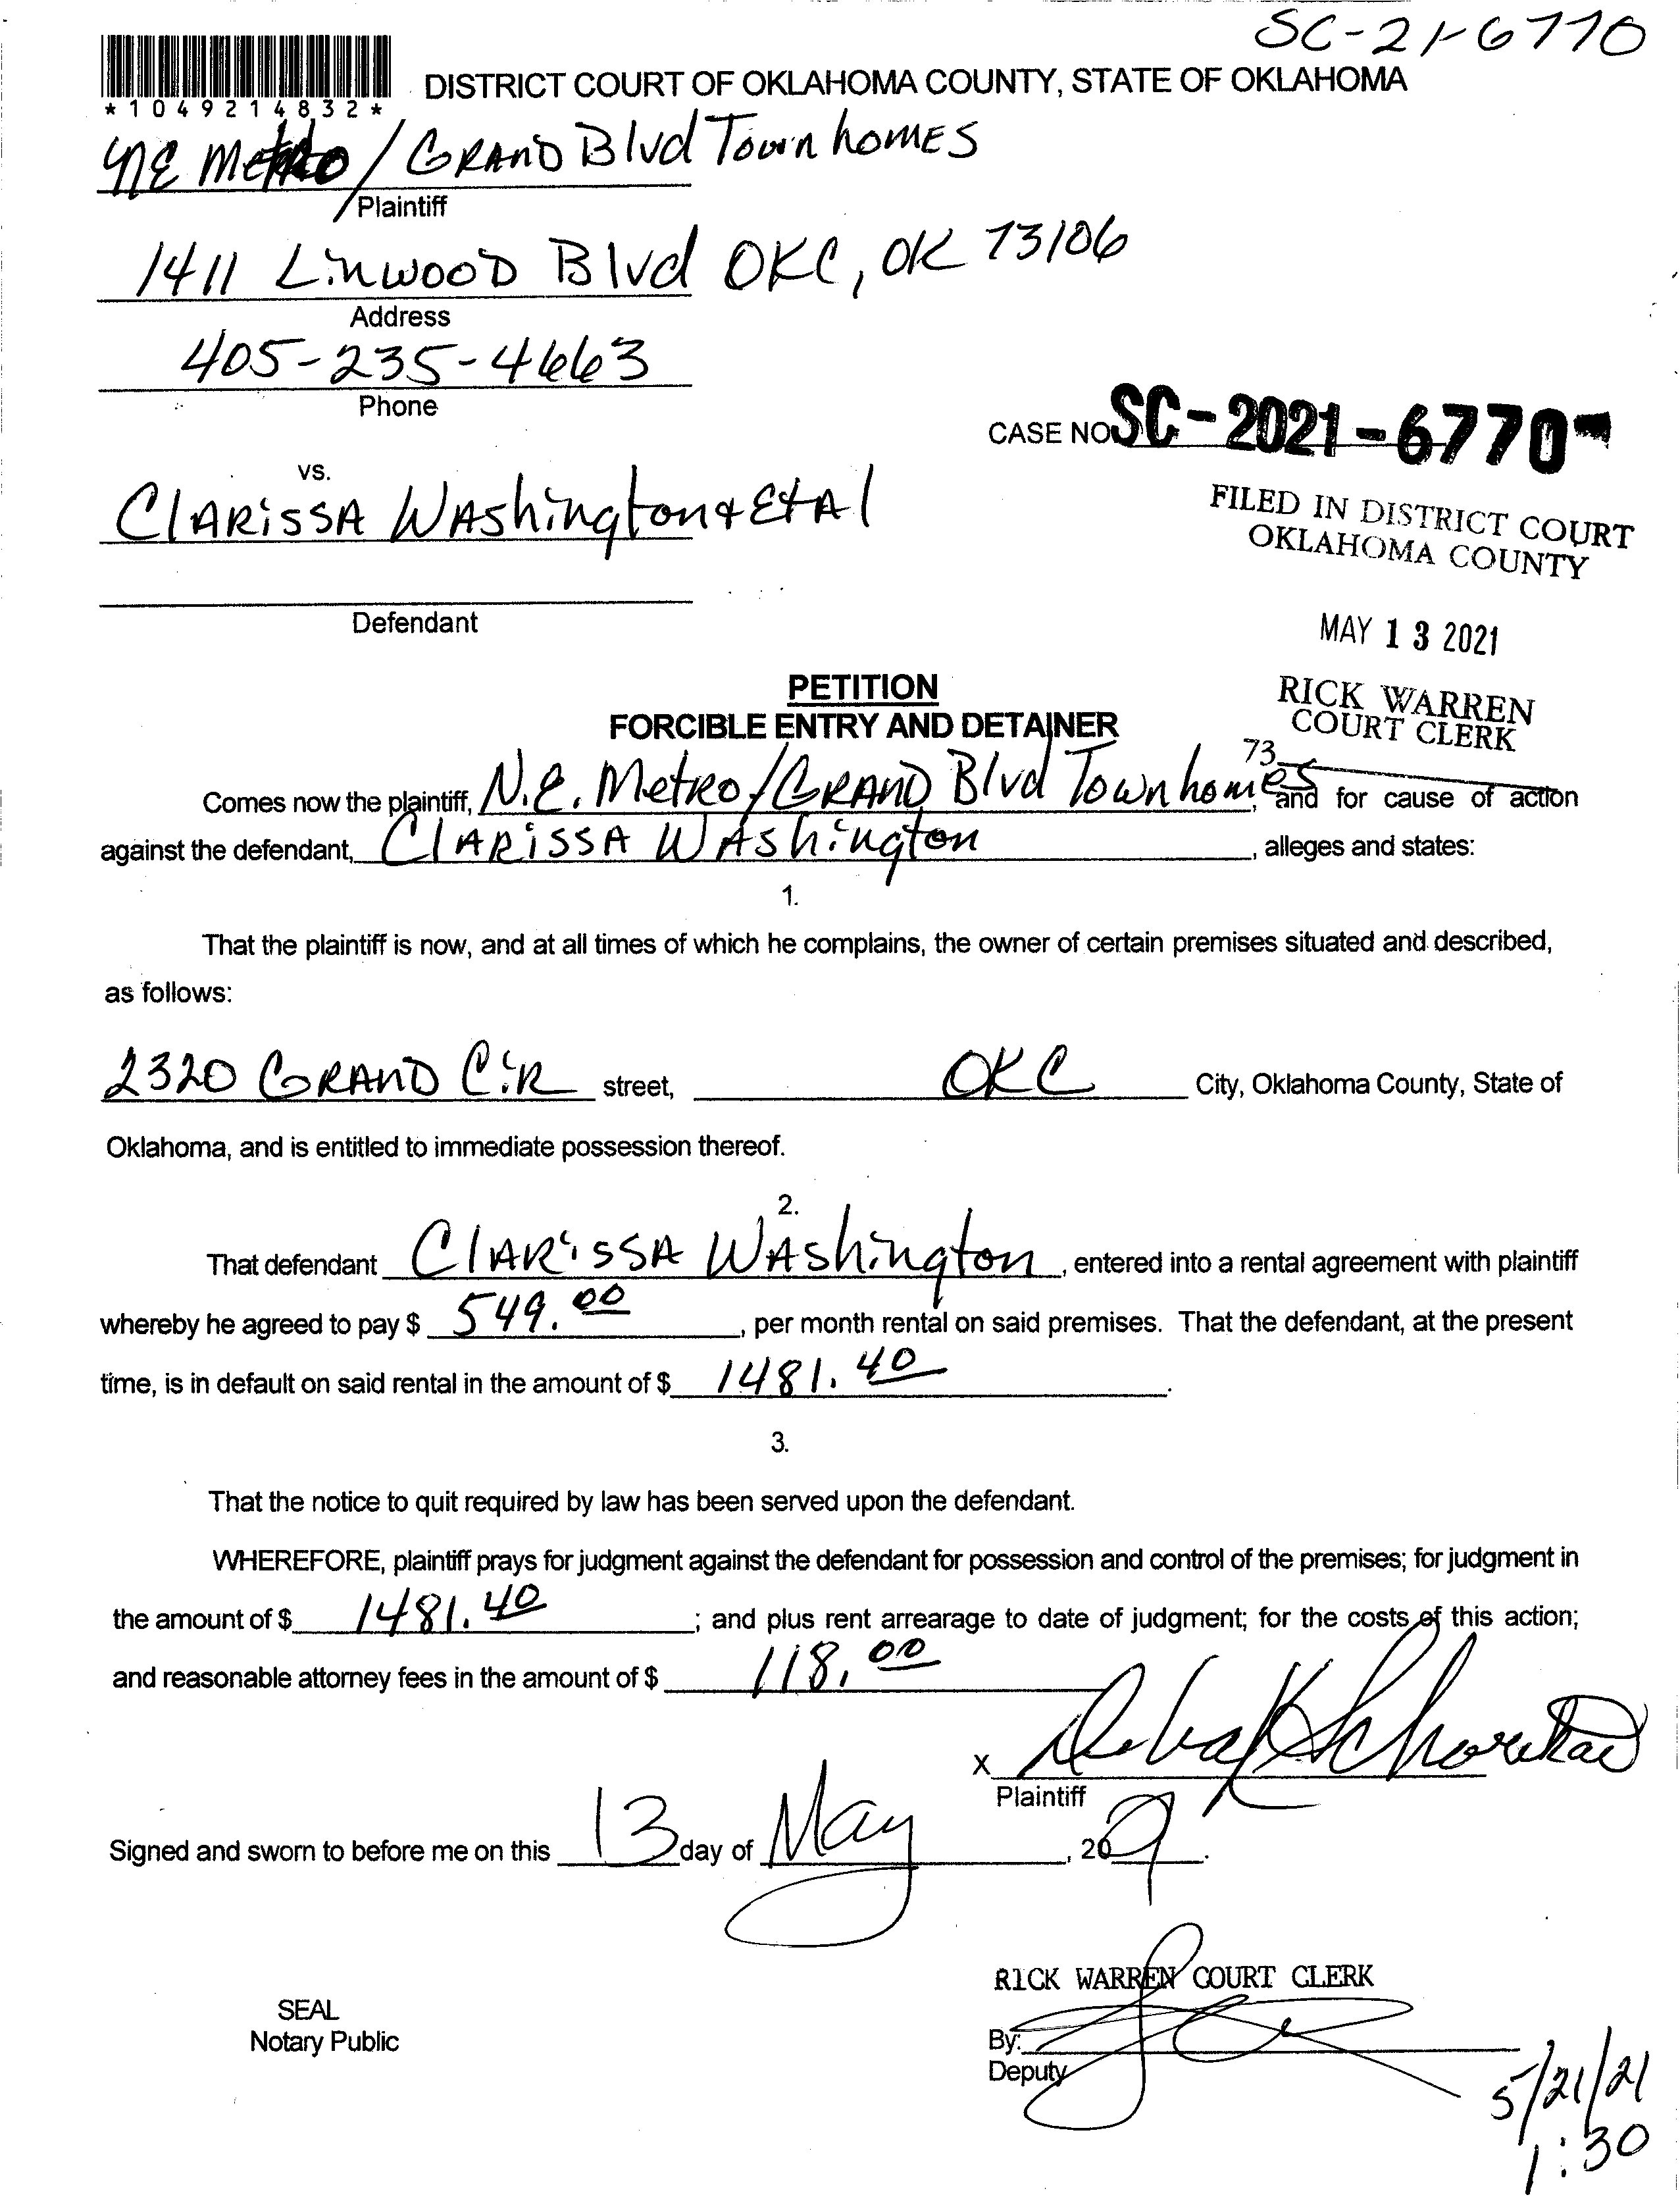 SC-21-6770
*1049214832*
DISTRICT COURT OF OKLAHOMA COUNTY, STATE OF OKLAHOMA
NE Metro / GRAND Blvd Townhomes
Plaintiff
1411 Linwood Blvd OKC, OK 73106
Address
405-235-4663
Phone
CASE NO SC-2021-6770-
vs.
Clarissa Washington & Et Al
FILED IN DISTRICT COURT
OKLAHOMA COUNTY
Defendant
MAY 13 2021
PETITION
RICK WARREN
COURT CLERK
FORCIBLE ENTRY AND DETAINER
73
Comes now the plaintiff, N.E. Metro/GRAND Blvd Townhomes, and for cause of action
against the defendant, Clarissa Washington, alleges and states:
1.
That the plaintiff is now, and at all times of which he complains, the owner of certain premises situated and described,
as follows:
2320 GRAND CiR street, OKC City, Oklahoma County, State of
Oklahoma, and is entitled to immediate possession thereof.
2.
That defendant Clarissa Washington, entered into a rental agreement with plaintiff
whereby he agreed to pay $ 549.00, per month rental on said premises. That the defendant, at the present
time, is in default on said rental in the amount of $ 1481.40.
3.
That the notice to quit required by law has been served upon the defendant.
WHEREFORE, plaintiff prays for judgment against the defendant for possession and control of the premises; for judgment in
the amount of $ 1481.40; and plus rent arrearage to date of judgment; for the costs of this action;
and reasonable attorney fees in the amount of $ 118.00
X
Plaintiff
Signed and sworn to before me on this 13 day of May, 20
RICK WARREN COURT CLERK
SEAL
Notary Public
By:
Deputy
5/21/21
1:30